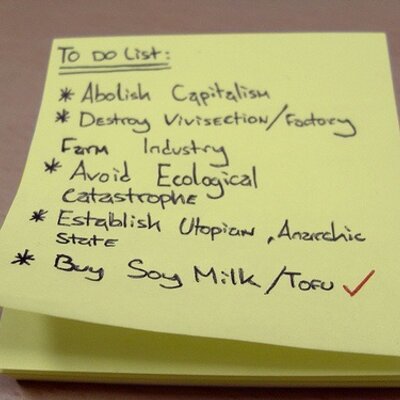 To Do List:
* Abolish Capitalism
* Destroy Vivisection/Factory
Farm Industry
* Avoid Ecological
Catastrophe
* Establish Utopian, Anarchic
State
* Buy Soy Milk/Tofu ✓